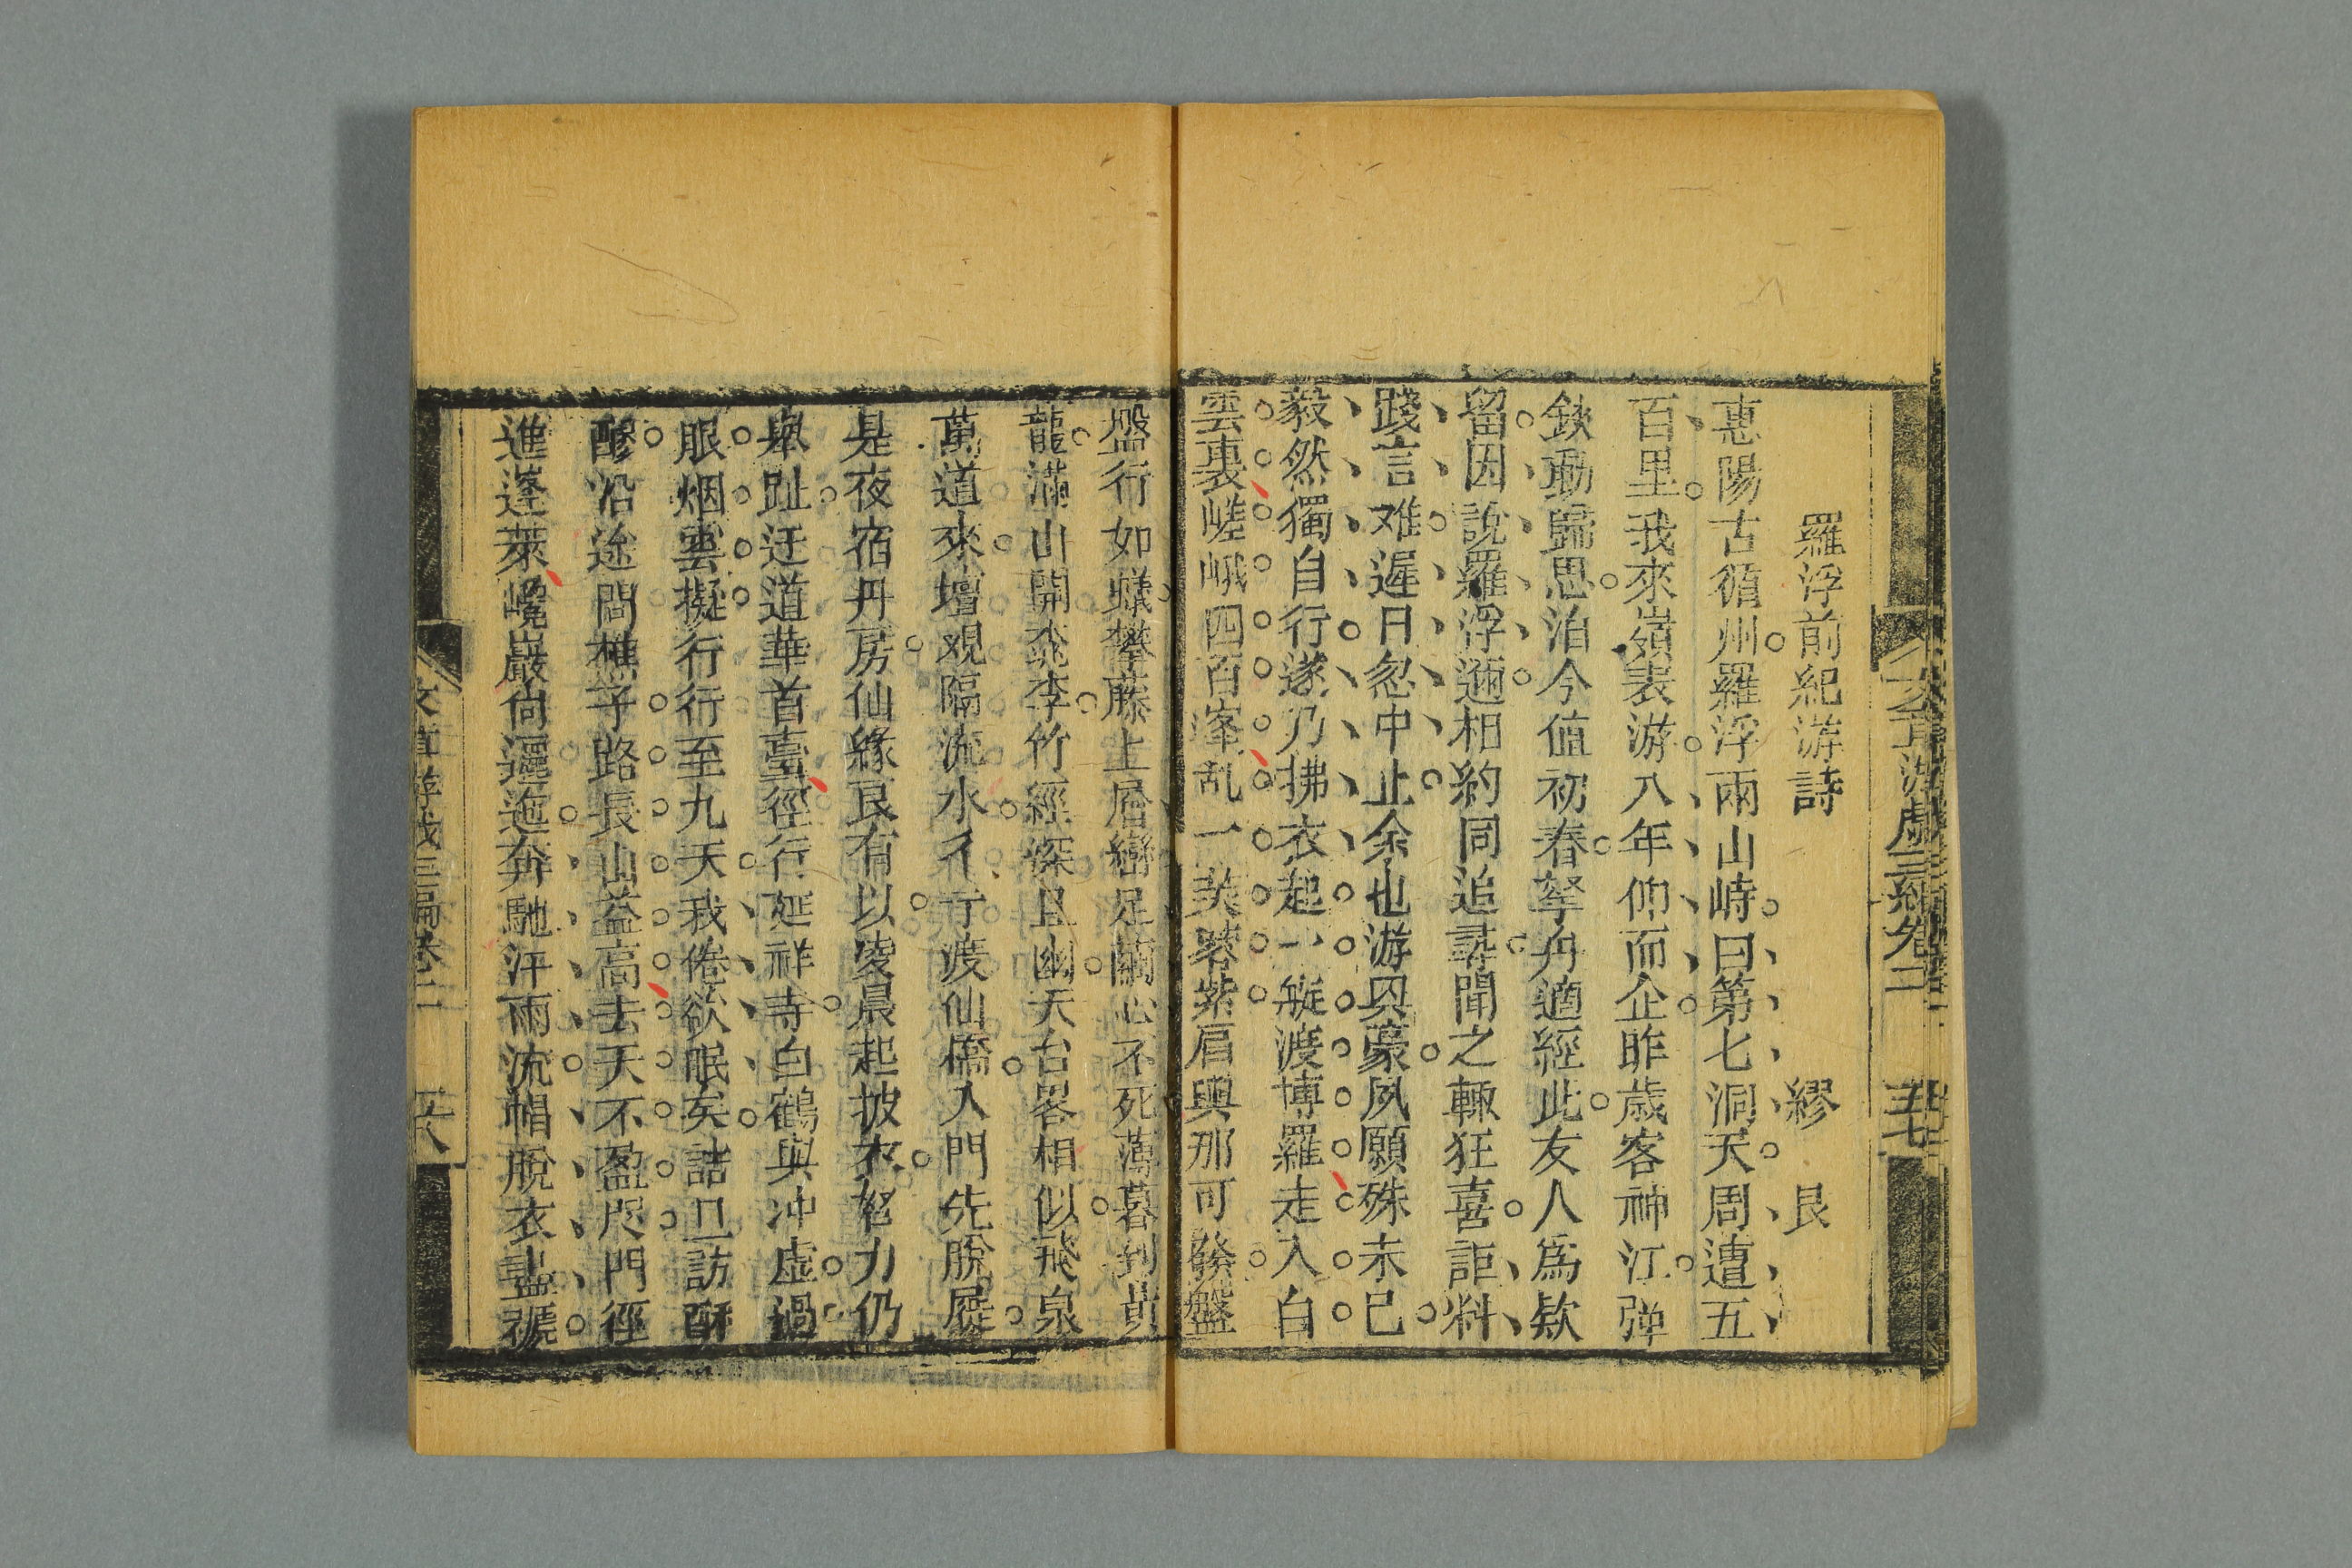 羅浮前紀游詩　繆艮
惠陽古循州羅浮兩山峙曰第七洞天周遭五
百里我來嶺表游八年仰而企昨歲客神江弹
鋏動歸思泊今值初春拏舟適經此友人爲欵
留因說羅浮邇相約同追尋聞之輙狂喜詎料
踐言难遲日忽中止余也游興豪夙願殊未已
毅然獨自行遂乃拂衣起一艇渡博羅走入白
雲裏嵯峨四百峯乱一芙蓉紫眉輿那可發盤
盤行如蟻攀藤上層巒足繭心不死薄暮到黃
龍滿山開桃李竹經深且幽天台畧相似飛泉
萬道來壇观隔流水彳亍渡仙橋入門先脫屣
是夜宿丹房仙緣良有以凌晨起披衣努力仍
舉趾迂道華首臺徑行延祥寺白鶴與冲虛過
眼烟雲擬行行至九天我倦欲眠矣詰旦訪酥
醪沿途問樵子路長山益高去天不盈咫門徑
進蓬萊巉巖尙邐迤奔馳汗雨流帽脫衣盡褫
文章游戲三編卷二　五十七
文章游戲三編卷二　五十八